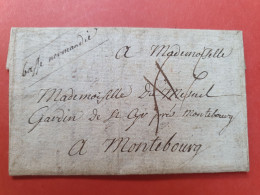 basse normandie
A Mademoiselle
Mademoiselle Du Mesnil
Gardin de St Cyr près Montebourg
A Montebourg